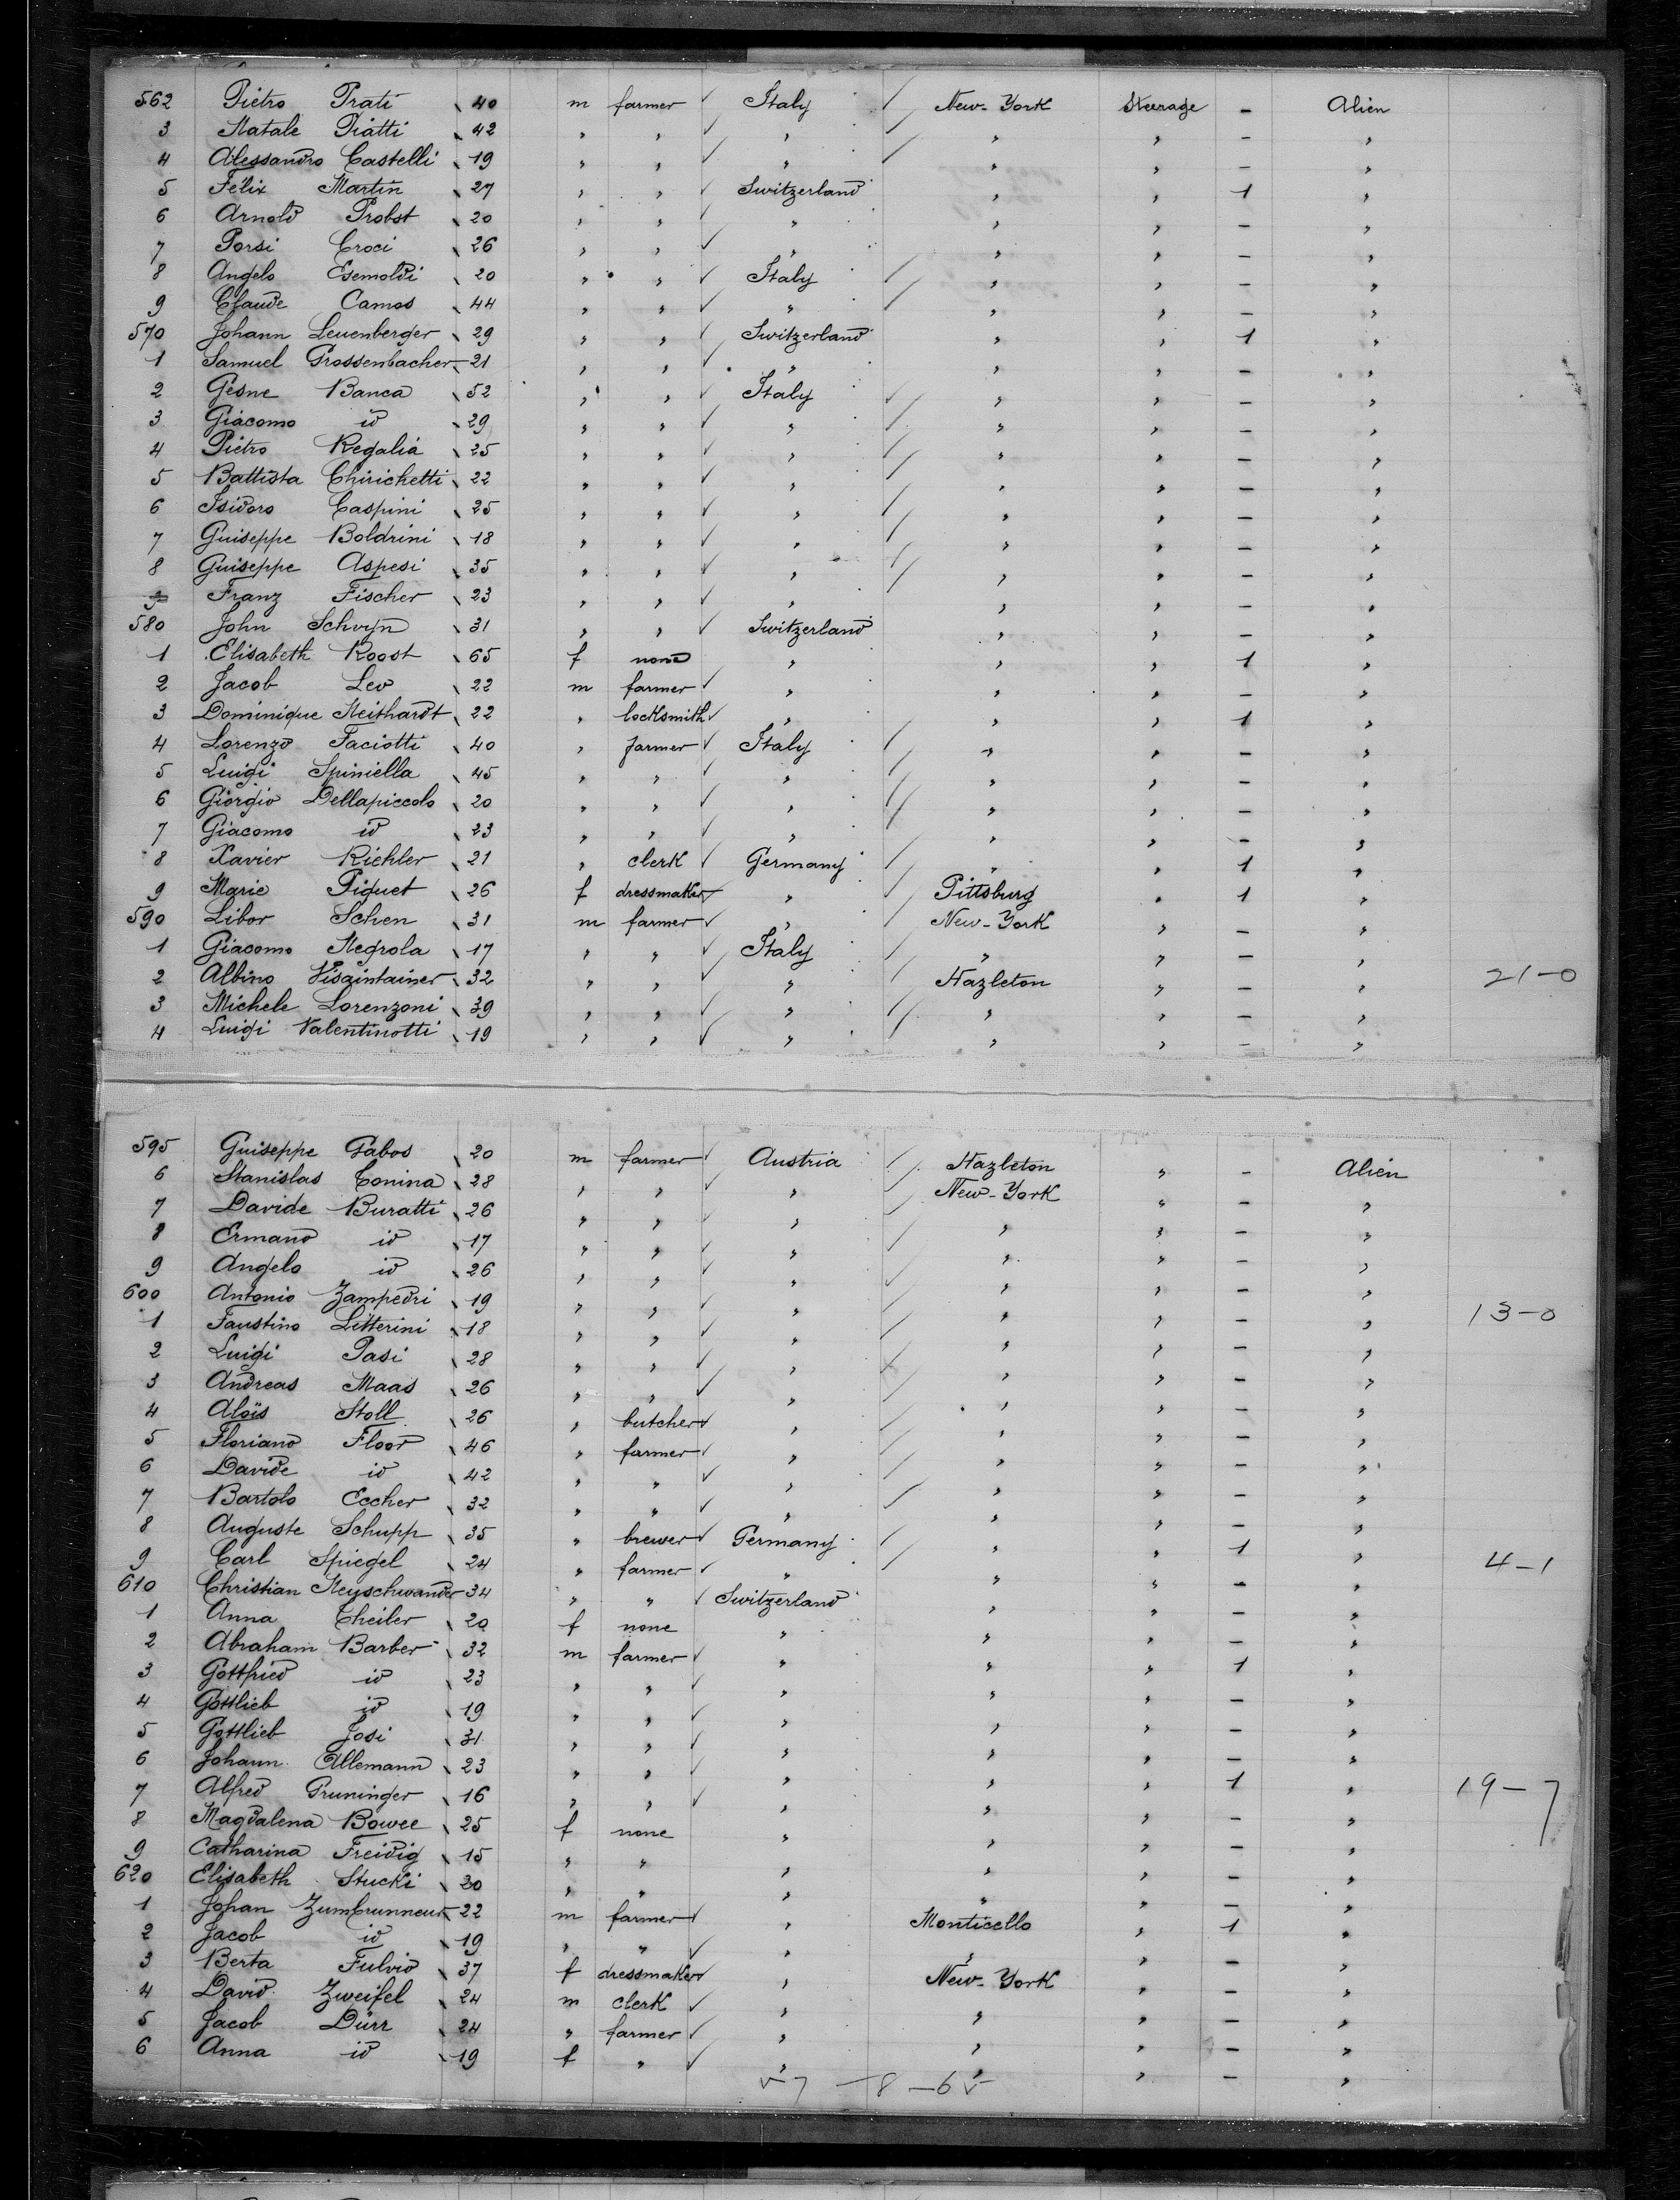 562 Pietro Prati 40 m farmer Italy New-York Steerage – Alien
3 Natale Piatti 42 " " " " " – "
4 Alessandro Castelli 19 " " " " " – "
5 Félix Martin 27 " " Switzerland " " 1 "
6 Arnold Probst 20 " " " " " – "
7 Porsi Croci 26 " " " " " – "
8 Angelo Esemoldi 20 " " Italy " " – "
9 Claude Camos 44 " " " " " – "
570 Johann Leuenberger 29 " " Switzerland " " 1 "
1 Samuel Grossenbacher 21 " " " " " – "
2 Gésne Banca 52 " " Italy " " – "
3 Giacomo id 29 " " " " " – "
4 Pietro Regalia 25 " " " " " – "
5 Battista Chirichetti 22 " " " " " – "
6 Isidoro Caspini 25 " " " " " – "
7 Guiseppe Boldrini 18 " " " " " – "
8 Guiseppe Aspesi 35 " " " " " – "
9 Franz Fischer 23 " " " " " – "
580 John Schwyn 31 " " Switzerland " " – "
1 Elisabeth Roost 65 f none " " " 1 "
2 Jacob Leo 22 m farmer " " " – "
3 Dominique Neithardt 22 " locksmith " " " 1 "
4 Lorenzo Faciotti 40 " farmer Italy " " – "
5 Luigi Spiniella 45 " " " " " – "
6 Giorgio Dellapiccolo 20 " " " " " – "
7 Giacomo id 23 " " " " " – "
8 Xavier Richler 21 " clerk Germany " " 1 "
9 Marie Piquet 26 f dressmaker " Pittsburg " 1 "
590 Libor Schen 31 m farmer " New-York " – "
1 Giacomo Negrola 17 " " Italy " " – "
2 Albino Visaintainer 32 " " " Hazleton " – " 21-0
3 Michele Lorenzoni 39 " " " " " – "
4 Luigi Valentinotti 19 " " " " " – "
595 Guiseppe Gabos 20 m farmer Austria Hazleton " – Alien
6 Stanislas Conina 28 " " " New-York " – "
7 Davide Buratti 26 " " " " " – "
8 Ermano id 17 " " " " " – "
9 Angelo id 26 " " " " " – "
600 Antonio Zampedri 19 " " " " " – " 13-0
1 Faustino Litterini 18 " " " " " – "
2 Luigi Pasi 28 " " " " " – "
3 Andreas Maas 26 " " " " " – "
4 Aloïs Stoll 26 " butcher " " " – "
5 Floriano Floor 46 " farmer " " " – "
6 Davide id 42 " " " " " – "
7 Bartolo Eccher 32 " " " " " – "
8 Auguste Schupp 35 " brewer Germany " " 1 "
9 Carl Spiegel 24 " farmer " " " – " 4-1
610 Christian Neyschwander 34 " " Switzerland " " – "
1 Anna Theiler 20 f none " " " – "
2 Abraham Barber 32 m farmer " " " 1 "
3 Gottfried id 23 " " " " " – "
4 Gottlieb id 19 " " " " " – "
5 Gottlieb Josi 31 " " " " " – "
6 Johann Allemann 23 " " " " " 1 "
7 Alfred Gruninger 16 " " " " " – " 19-7
8 Magdalena Bowee 25 f none " " " – "
9 Catharina Freidig 15 " " " " " – "
620 Elisabeth Stucki 20 " " " " " – "
1 Johan Zumbrunneur 22 m farmer " Monticello " 1 "
2 Jacob id 19 " " " " " – "
3 Berta Fulvio 37 f dressmaker " New-York " – "
4 David Zweifel 24 m clerk " " " – "
5 Jacob Dürr 24 " farmer " " " – "
6 Anna id 19 f " " " " – "